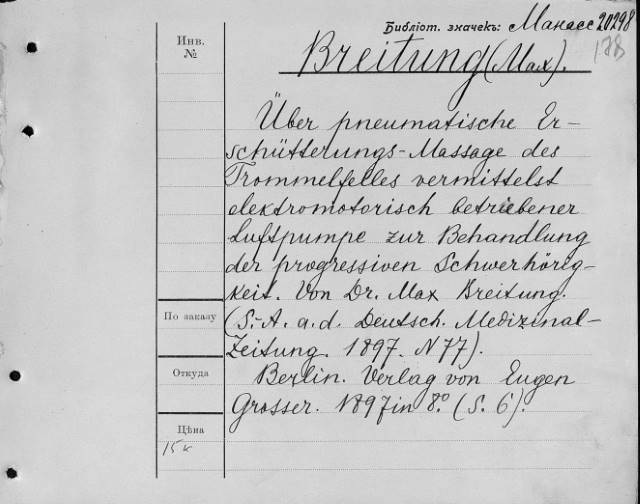 Библіот. значекъ: Манасс 20298
178
Инв.
№
Breitung (Max).
Über pneumatische Er-
schütterungs-Massage des
Trommelfelles vermittelst
elektromotorisch betriebener
Luftpumpe zur Behandlung
der progressiven Schwerhörig-
keit. Von Dr. Max Breitung.
По заказу
(S.-A. a. d. Deutsch. Medizinal-
Zeitung. 1897. N 77).
Откуда
Berlin. Verlag von Eugen
Grosser. 1897 in 8.° (S. 6).
Цѣна
15 к